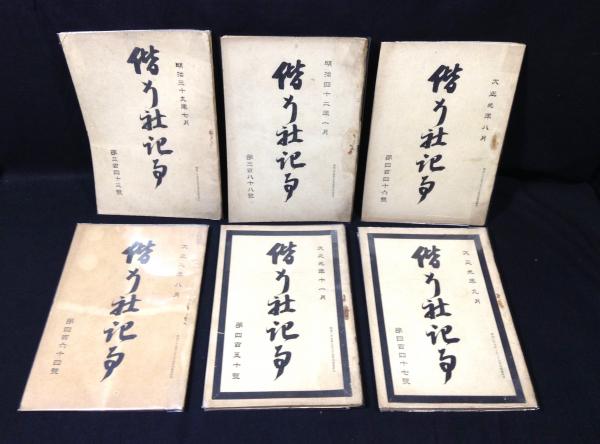 明治三十九年七月
偕行社記事
第三百四十三號
明治四十二年一月
偕行社記事
第三百八十八號
大正元年八月
偕行社記事
第四百四十六號
大正二年八月
偕行社記事
第四百六十四號
大正元年十一月
偕行社記事
第四百五十號
大正元年九月
偕行社記事
第四百四十七號